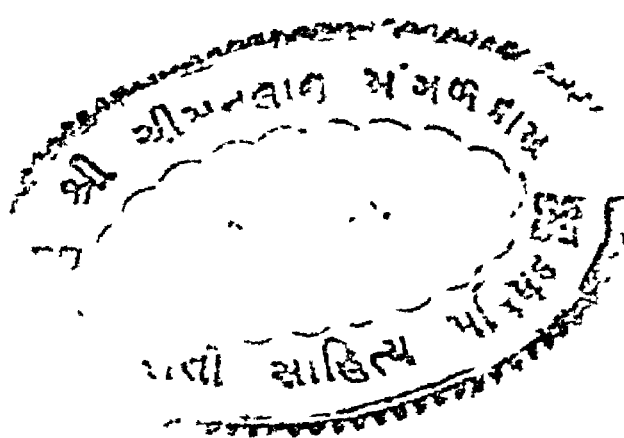 શ્રી ચીમનલાલ મંગળદાસ
સાહિત્ય પરિષદ